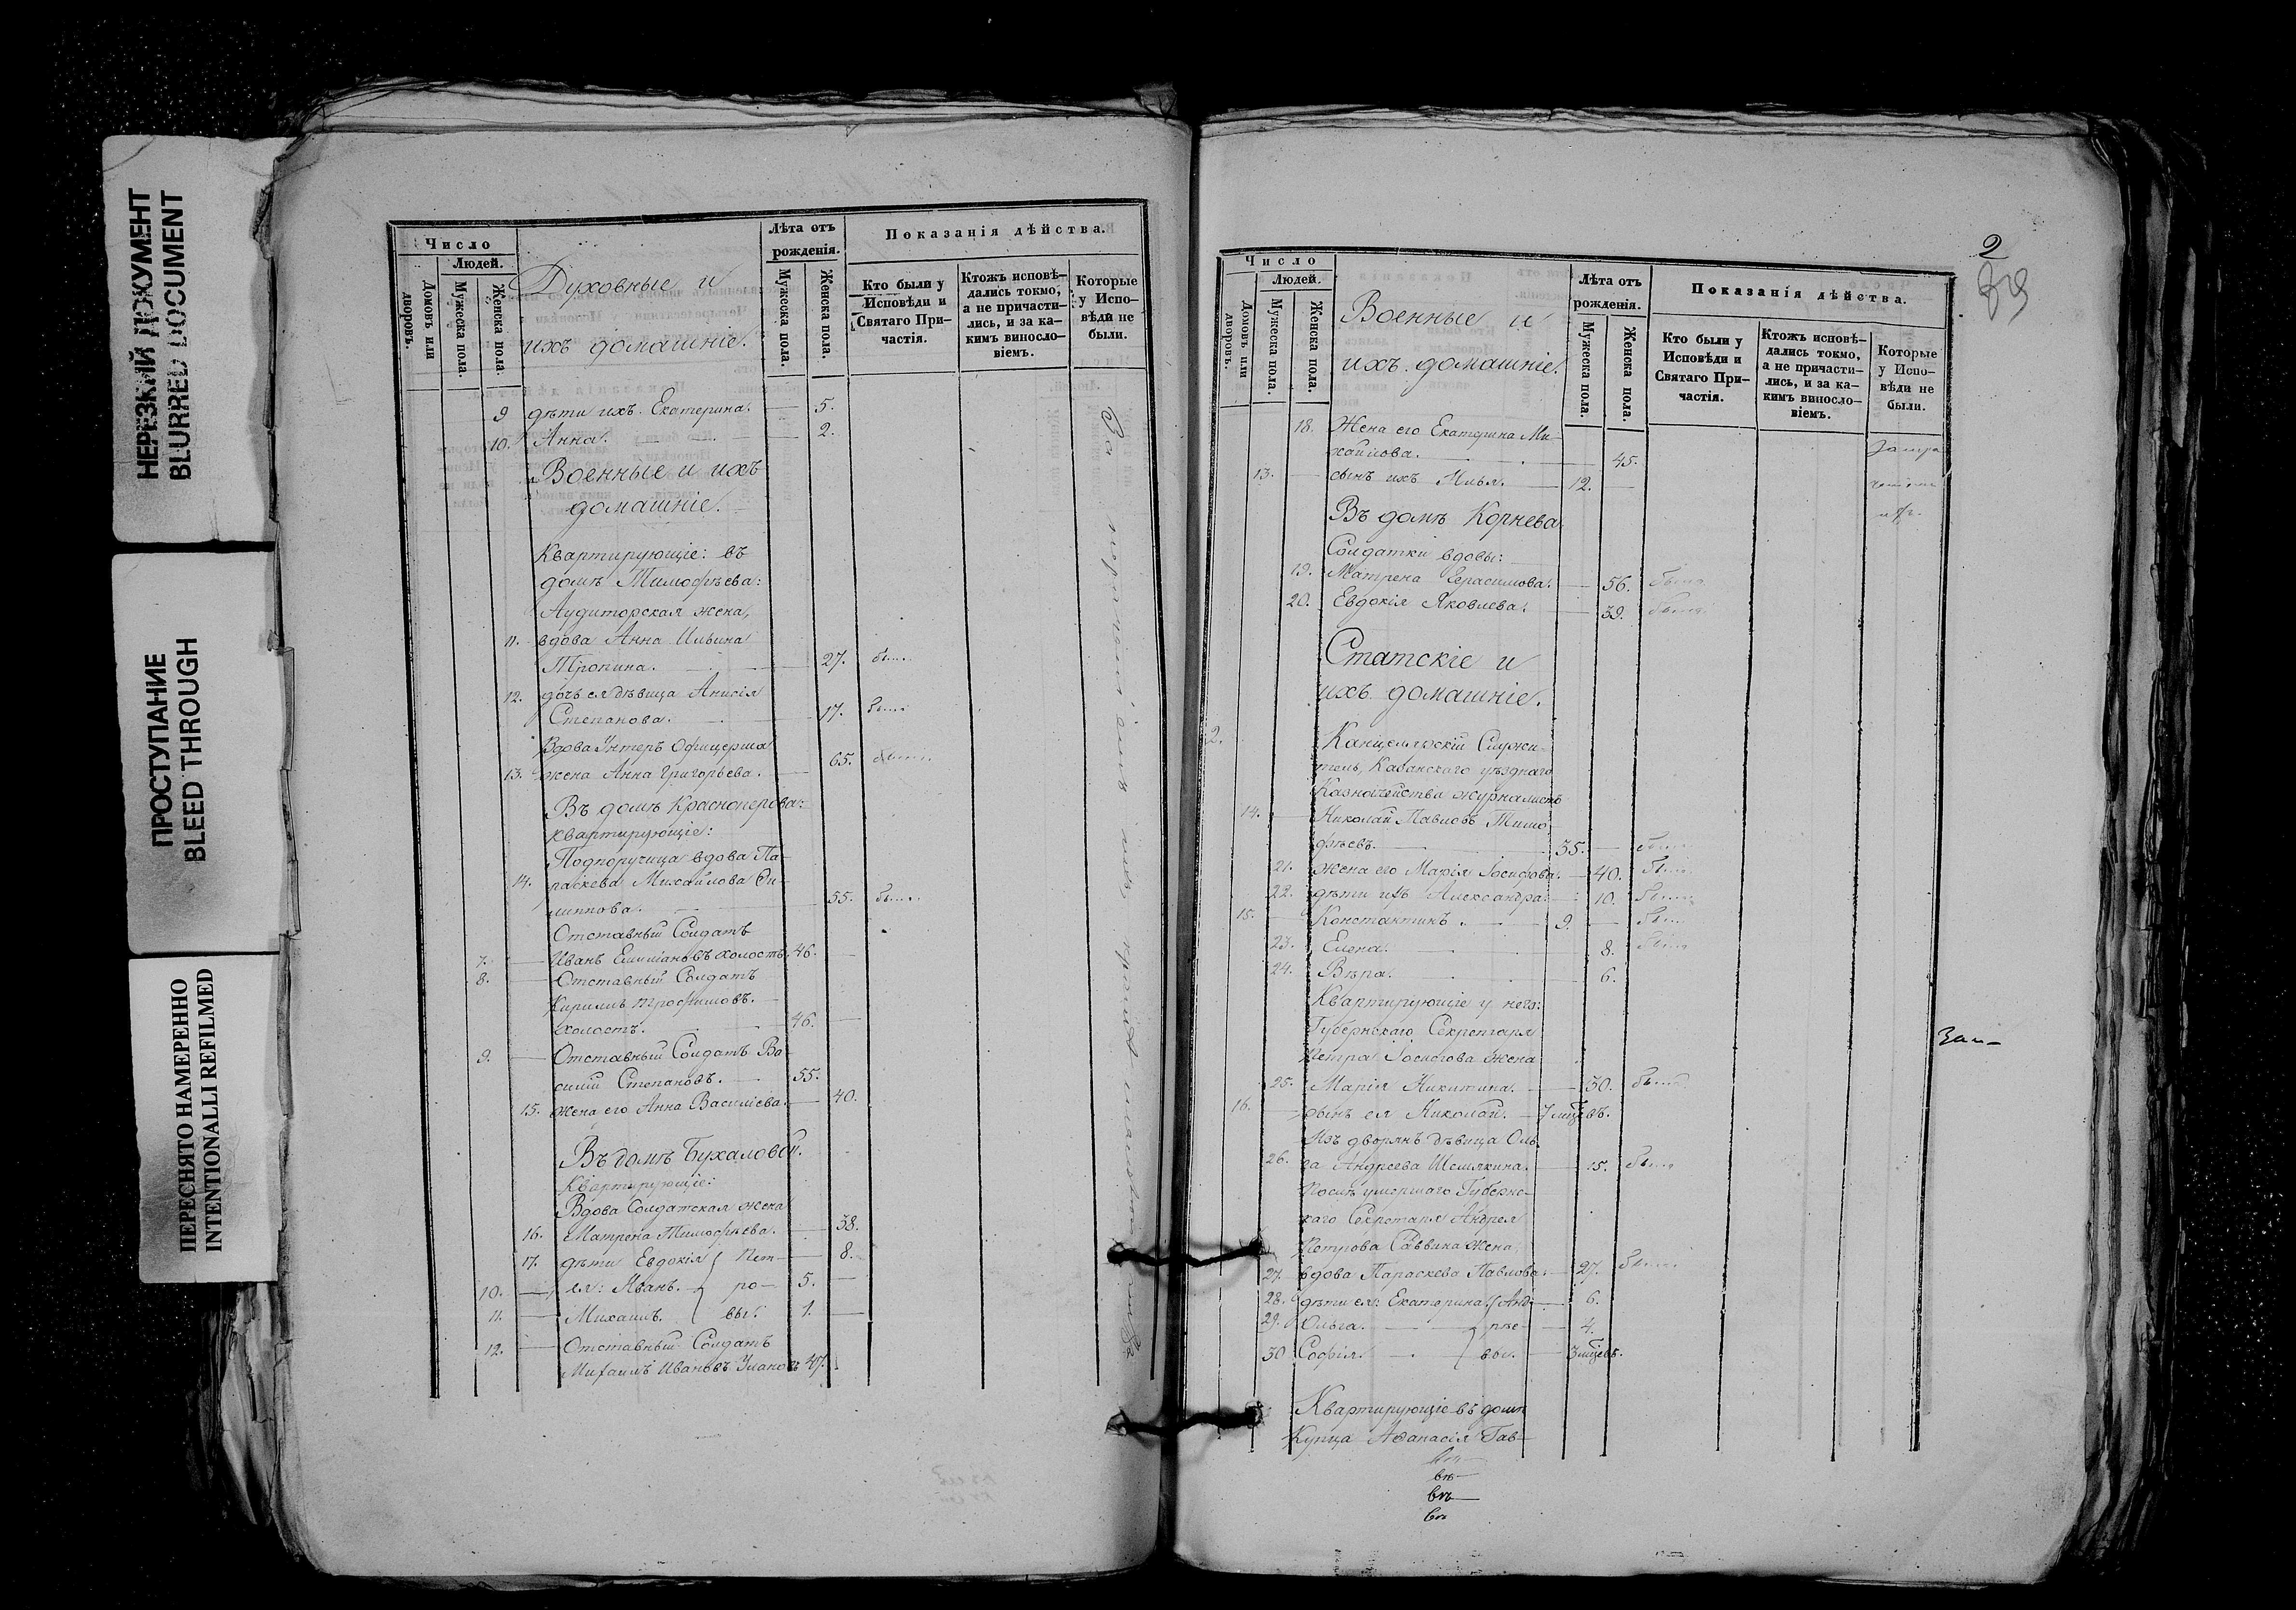 НЕРЕЗКИЙ ДОКУМЕНТ
BLURRED DOCUMENT
ПРОСТУПАНИЕ
BLEED THROUGH
ПЕРЕСНЯТО НАМЕРЕННО
INTENTIONALLI REFILMED
Число
Людей.
Домовъ или дворовъ.
Мужеска пола.
Женска пола.
Духовные и
ихъ домашніе.
Лѣта отъ
рожденія.
Мужеска пола.
Женска пола.
Показанія дѣйства.
Кто были у
Исповѣди и
Святаго При-
частія.
Ктожъ исповѣ-
дались токмо,
а не причасти-
лись, и за ка-
кимъ винос­ло-
віемъ.
Которые
у Испо-
вѣди не
были.
9 дѣти ихъ. Екатерина. 5.
10. Анна. 2.
Военные и ихъ
домашніе.
Квартирующіе: въ
домѣ Тимофѣева:
Аудиторская жена,
11. вдова Анна Ильина
Тропина. 27.
12. дочь ея дѣвица Анисія
Степанова. 17.
Вдова Унтеръ Офицерша
13. жена Анна Григорьева. 65.
Въ домѣ Красноперова:
квартирующіе:
Подпоручица вдова Па-
14. раскева Михайлова Фи-
липпова. 55.
Отставный Солдатъ
7. Иванъ Емиліановъ холостъ. 46.
8. Отставный Солдатъ
Кирилъ Трофимовъ.
холостъ. 46.
9. Отставный Солдатъ Ва-
силій Степановъ. 55.
15. жена его Анна Василіева. 40.
Въ домѣ Бухаловой.
Квартирующіе:
Вдова Солдатская жена
16. Матрена Тимофѣева. 38.
17. дѣти Евдокія Пет- 8.
10. ея: Иванъ. ро- 5.
11. Михаилъ. вы. 1.
12. Отставный Солдатъ
Михаилъ Ивановъ Улановъ 47.
2
Число
Людей.
Домовъ или дворовъ.
Мужеска пола.
Женска пола.
Военные и
ихъ домашніе.
Лѣта отъ
рожденія.
Мужеска пола.
Женска пола.
Показанія дѣйства.
Кто были у
Исповѣди и
Святаго При-
частія.
Ктожъ исповѣ-
дались токмо,
а не причасти-
лись, и за ка-
кимъ винос­ло-
віемъ.
Которые
у Испо-
вѣди не
были.
18. Жена его Екатерина Ми-
хайлова. 45.
13. сынъ ихъ Илья. 12.
Въ домѣ Корнева
Солдатки вдовы:
19. Матрена Герасимова. 56.
20. Евдокія Яковлева. 39.
Статскіе и
ихъ домашніе.
2. Канцелярскій Служи-
тель, Казанскаго уѣзднаго
Казначейства журналистъ
14. Николай Павловъ Тимо-
фѣевъ. 35.
21. жена его Марія Іосифова. 40.
22. дѣти ихъ Александра. 10.
15. Константинъ. 9.
23. Елена. 8.
24. Вѣра. 6.
Квартирующіе у него:
Губернскаго Секретаря
Петра Іосифова жена
25. Марія Никитина. 30.
16. сынъ ея Николай. 7 мѣсв.
Изъ дворянъ дѣвица Оль-
26. га Андреева Шемякина. 15.
Послѣ умершаго Губернс-
каго Секретаря Андрея
Петрова Саввина жена,
27. вдова Параскева Павлова. 27.
28. дѣти ея: Екатерина. Анд- 6.
29. Ольга. рѣе- 4.
30 Софія. вы. 3 мѣсв.
Квартирующіе въ домѣ
Купца Афанасія Гав-
въ
въ
въ